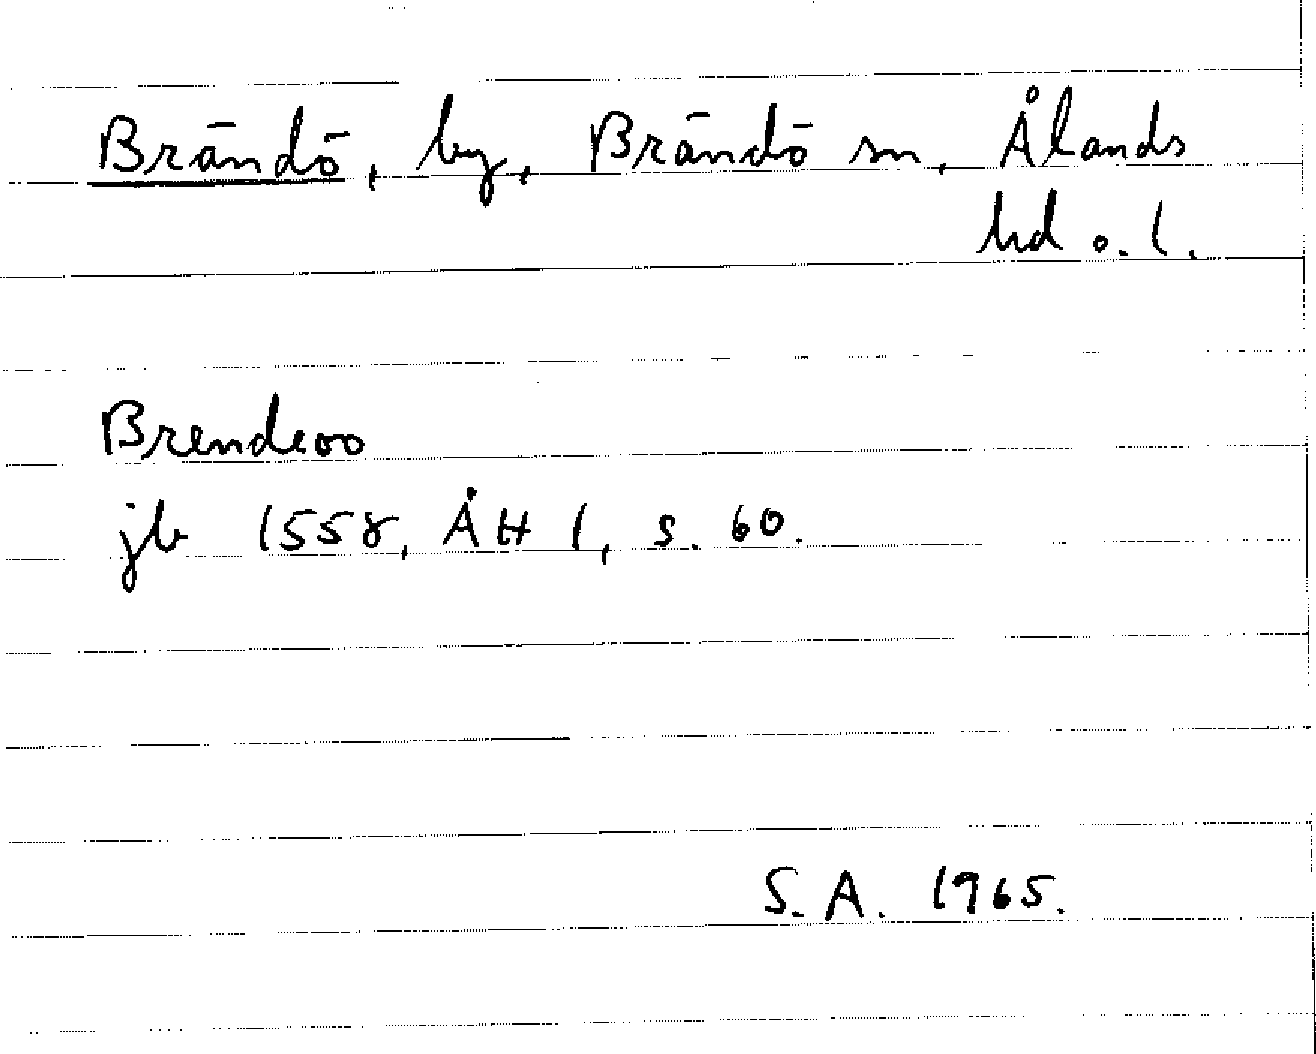 Brändö, by, Brändö sn, Ålands
hd o. l.
Brendeoo
jb 1558, ÅH 1, s. 60.
S. A. 1965.